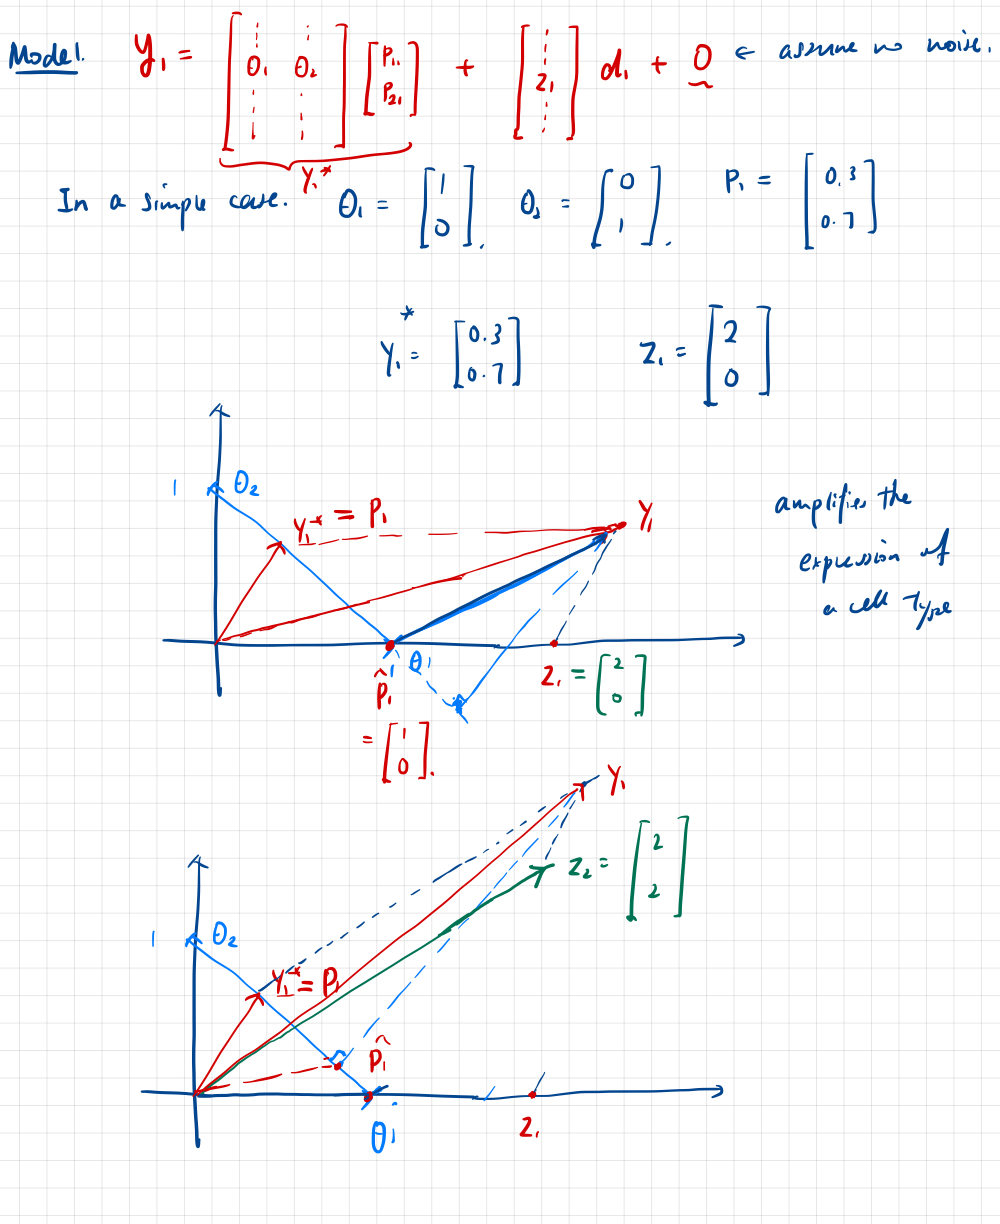 Model. y₁ = [θ₁ θ₂] [P₁₁ P₂₁] + [z₁] d₁ + 0 ← assume no noise.
Y₁*
In a simple case. θ₁ = [1 0], θ₂ = [0 1]. P₁ = [0.3 0.7]
Y₁* = [0.3 0.7] Z₁ = [2 0]
1 θ₂
Y₁* = P₁ Y₁
amplifies the
expression of
a cell type
1 θ₁
P̂₁ = [1 0].
Z₁ = [2 0]
Y₁
Z₂ = [2 2]
1 θ₂
Y₁* = P₁
P̂₁
θ₁
Z₁